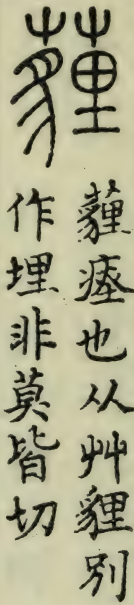 薶
薶瘞也从艸貍別
作埋非莫皆切